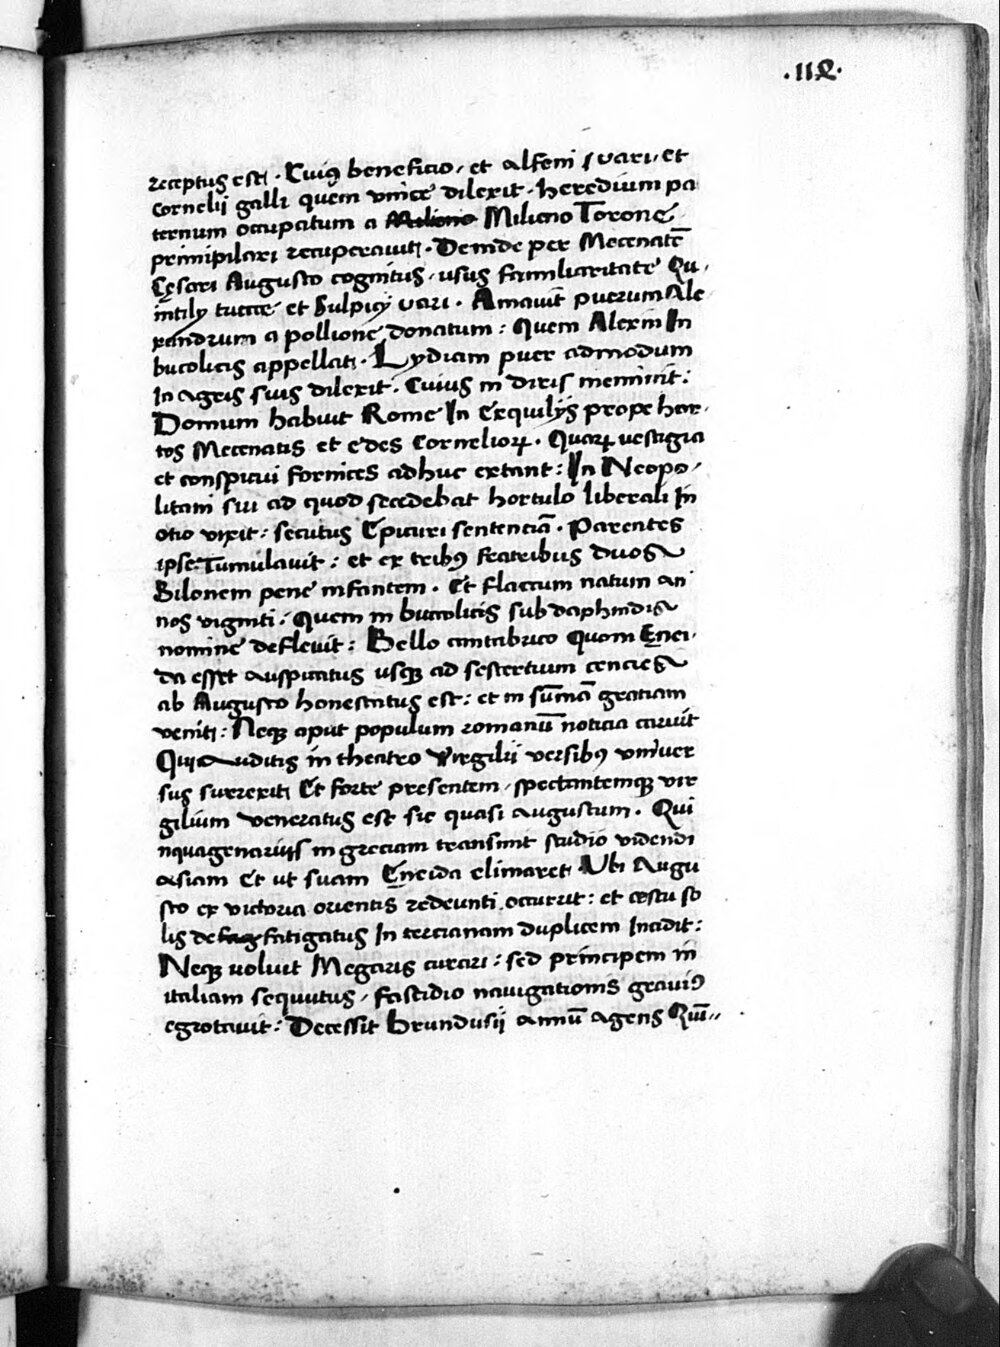 .112.
receptus est. Cuiꝰ beneficio, et alfeni vari, et
Cornelii galli quem vnice dilexit. heredium pa
ternum occupatum a Milieno Milieno Torone
primipilari recuperavit. Deinde per Mecenatē
Cęsari Augusto cognitus, usus familiaritate Qu,
intily tuccae et Sulpicij vari. Amavit puerum Ale
xandrum a pollione donatum: Quem Alexin In
bucolicis appellat. Lydiam puer admodum
In agris suis dilexit. Cuius in diris meminit:
Domum habuit Rome In Exquilijs prope hor,
tos Mecenatis et edes Corneliorꝝ. Quarꝝ vestigia
et conspicui fornices adhuc extant: In Neopo,
litani sui ad quod secedebat hortulo liberali In
otio vixit: secutus Epicuri sentenciā. Parentes
ipse Tumulavit: et ex tribꝰ fratribus duos
Silonem pene infantem. Et flaccum natum an
nos viginti. Quem in buccolicis sub daphnidis
nomine deflevit: Bello cantabrico quom Enei,
da esset auspicatus usqꝫ ad sestertium cencies
ab Augusto honestatus est: et in sum̄ā gratiam
venit: Neqꝫ aput populum romanū noticia caruit
Qui auditis in theatro Virgilii versibꝰ vniver
sus surrexit Et forte presentem, spectantemqꝫ vir
gilium veneratus est sic quasi augustum. Qui
nquagenariis in greciam transiuit studio videndi
asiam Et ut suam Eneida elimaret Ubi Augu
sto ex victoria orientis redeunti occurrit: et aestu so
lis de fatigatus In tercianam duplicem Incidit:
Neqꝫ voluit Megaris curari: sed principem in
italiam sequutus, fastidio navigationis graviꝰ
egrotavit: Decessit brundusii annū agens Qūī